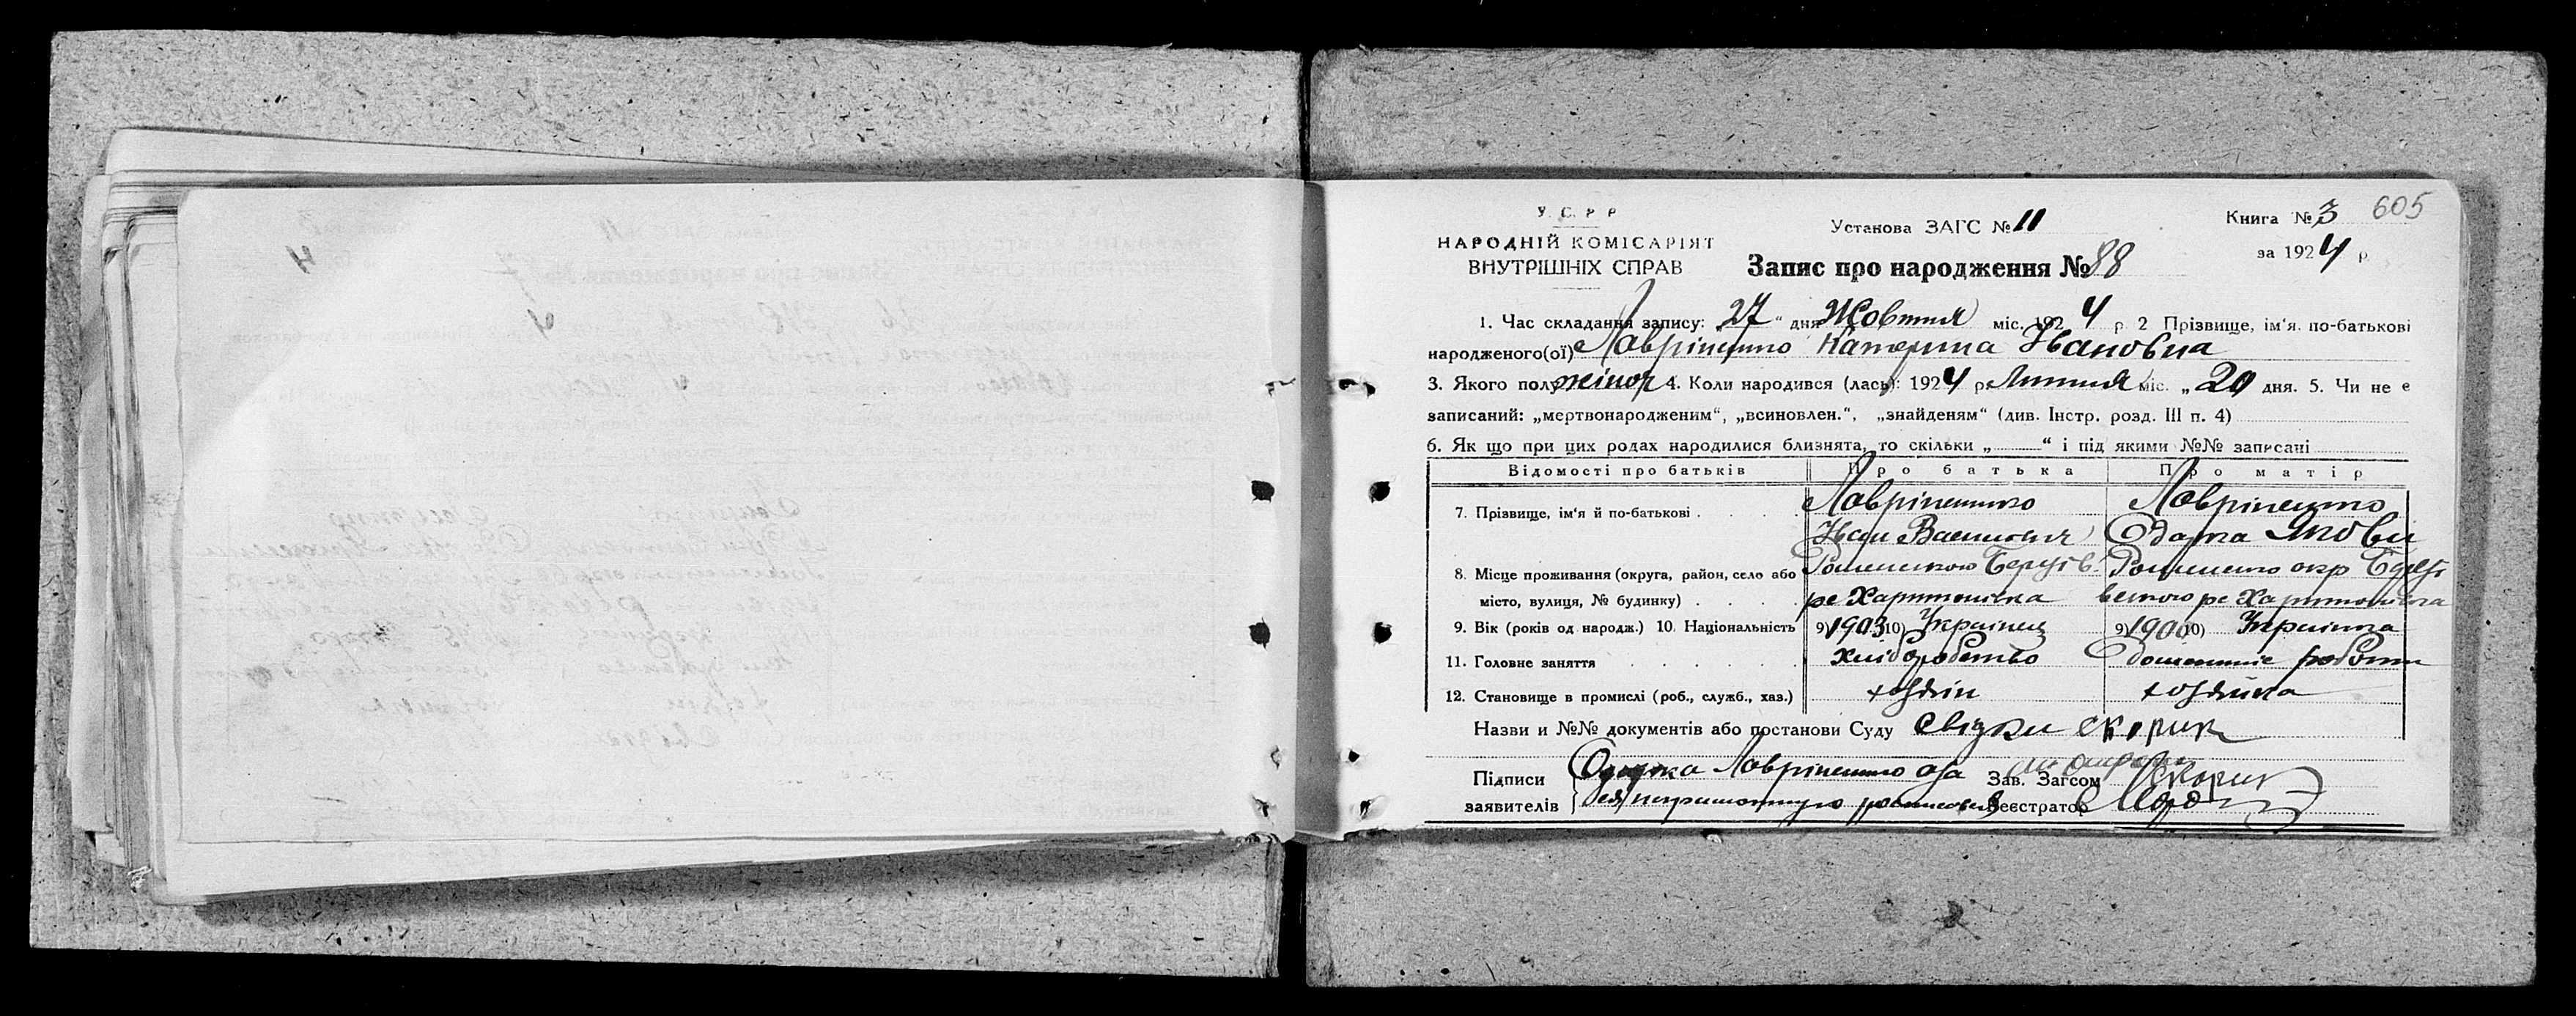 У. С. Р. Р
НАРОДНІЙ КОМІСАРІЯТ
ВНУТРІШНІХ СПРАВ
Установа ЗАГС № 11
Книга № 3 605
за 1924 р
Запис про народження № 88
1. Час складання запису: „27“ дня Жовтня міс. 1924 р. 2 Прізвище, ім'я. по-батькові
народженого(ої) Лавріненко Катерина Івановна
3. Якого полу жіноч 4. Коли народився (лась): 1924 р. Липня міс. „20 дня. 5. Чи не є
записаний: „мертвонародженим“, „всиновлен.“, „знайденям“ (див. Інстр. розд. III п. 4)
6. Як що при цих родах народилися близнята, то скільки „ “ і під якими №№ записані
Відомості про батьків Про батька Про матір
7. Прізвище, ім'я й по-батькові Лавріненко Лавріненко
Іван Василович Одарка Якові
8. Місце проживання (округа, район, село або Роменською Роменсько окр
місто, вулиця, № будинку) ре Харитонівка ре Харитонівка
9. Вік (років од народж.) 10. Національність 9) 1903 10) Українец 9) 1900 10) Українка
11. Головне заняття хліборобство домашніе роботи
12. Становище в промислі (роб., служб., хаз.) хозяїн хозяйка
Назви и №№ документів або постанови Суду свідки скорик
Підписи Одарка Лавріненко а за Зав. Загсом Скорик
заявителів неграмотную росписався Реєстратор